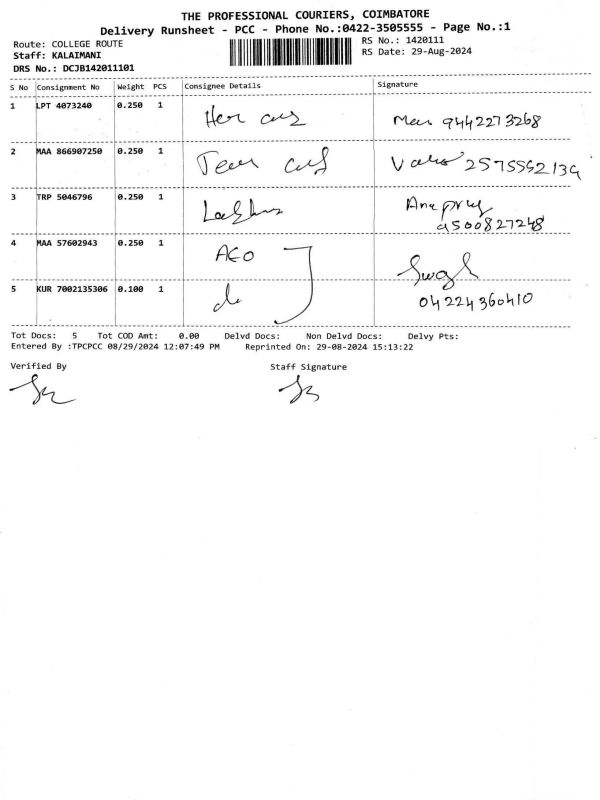 THE PROFESSIONAL COURIERS, COIMBATORE
Delivery Runsheet - PCC - Phone No.:0422-3505555 - Page No.:1
Route: COLLEGE ROUTE RS No.: 1420111
Staff: KALAIMANI RS Date: 29-Aug-2024
DRS No.: DCJB142011101
S No Consignment No Weight PCS Consignee Details Signature
1 LPT 4073240 0.250 1 9442273268
2 MAA 866907250 0.250 1
3 TRP 5046796 0.250 1
9500827248
4 MAA 57602943 0.250 1
5 KUR 7002135306 0.100 1 04224360410
Tot Docs: 5 Tot COD Amt: 0.00 Delvd Docs: Non Delvd Docs: Delvy Pts:
Entered By :TPCPCC 08/29/2024 12:07:49 PM Reprinted On: 29-08-2024 15:13:22
Verified By Staff Signature